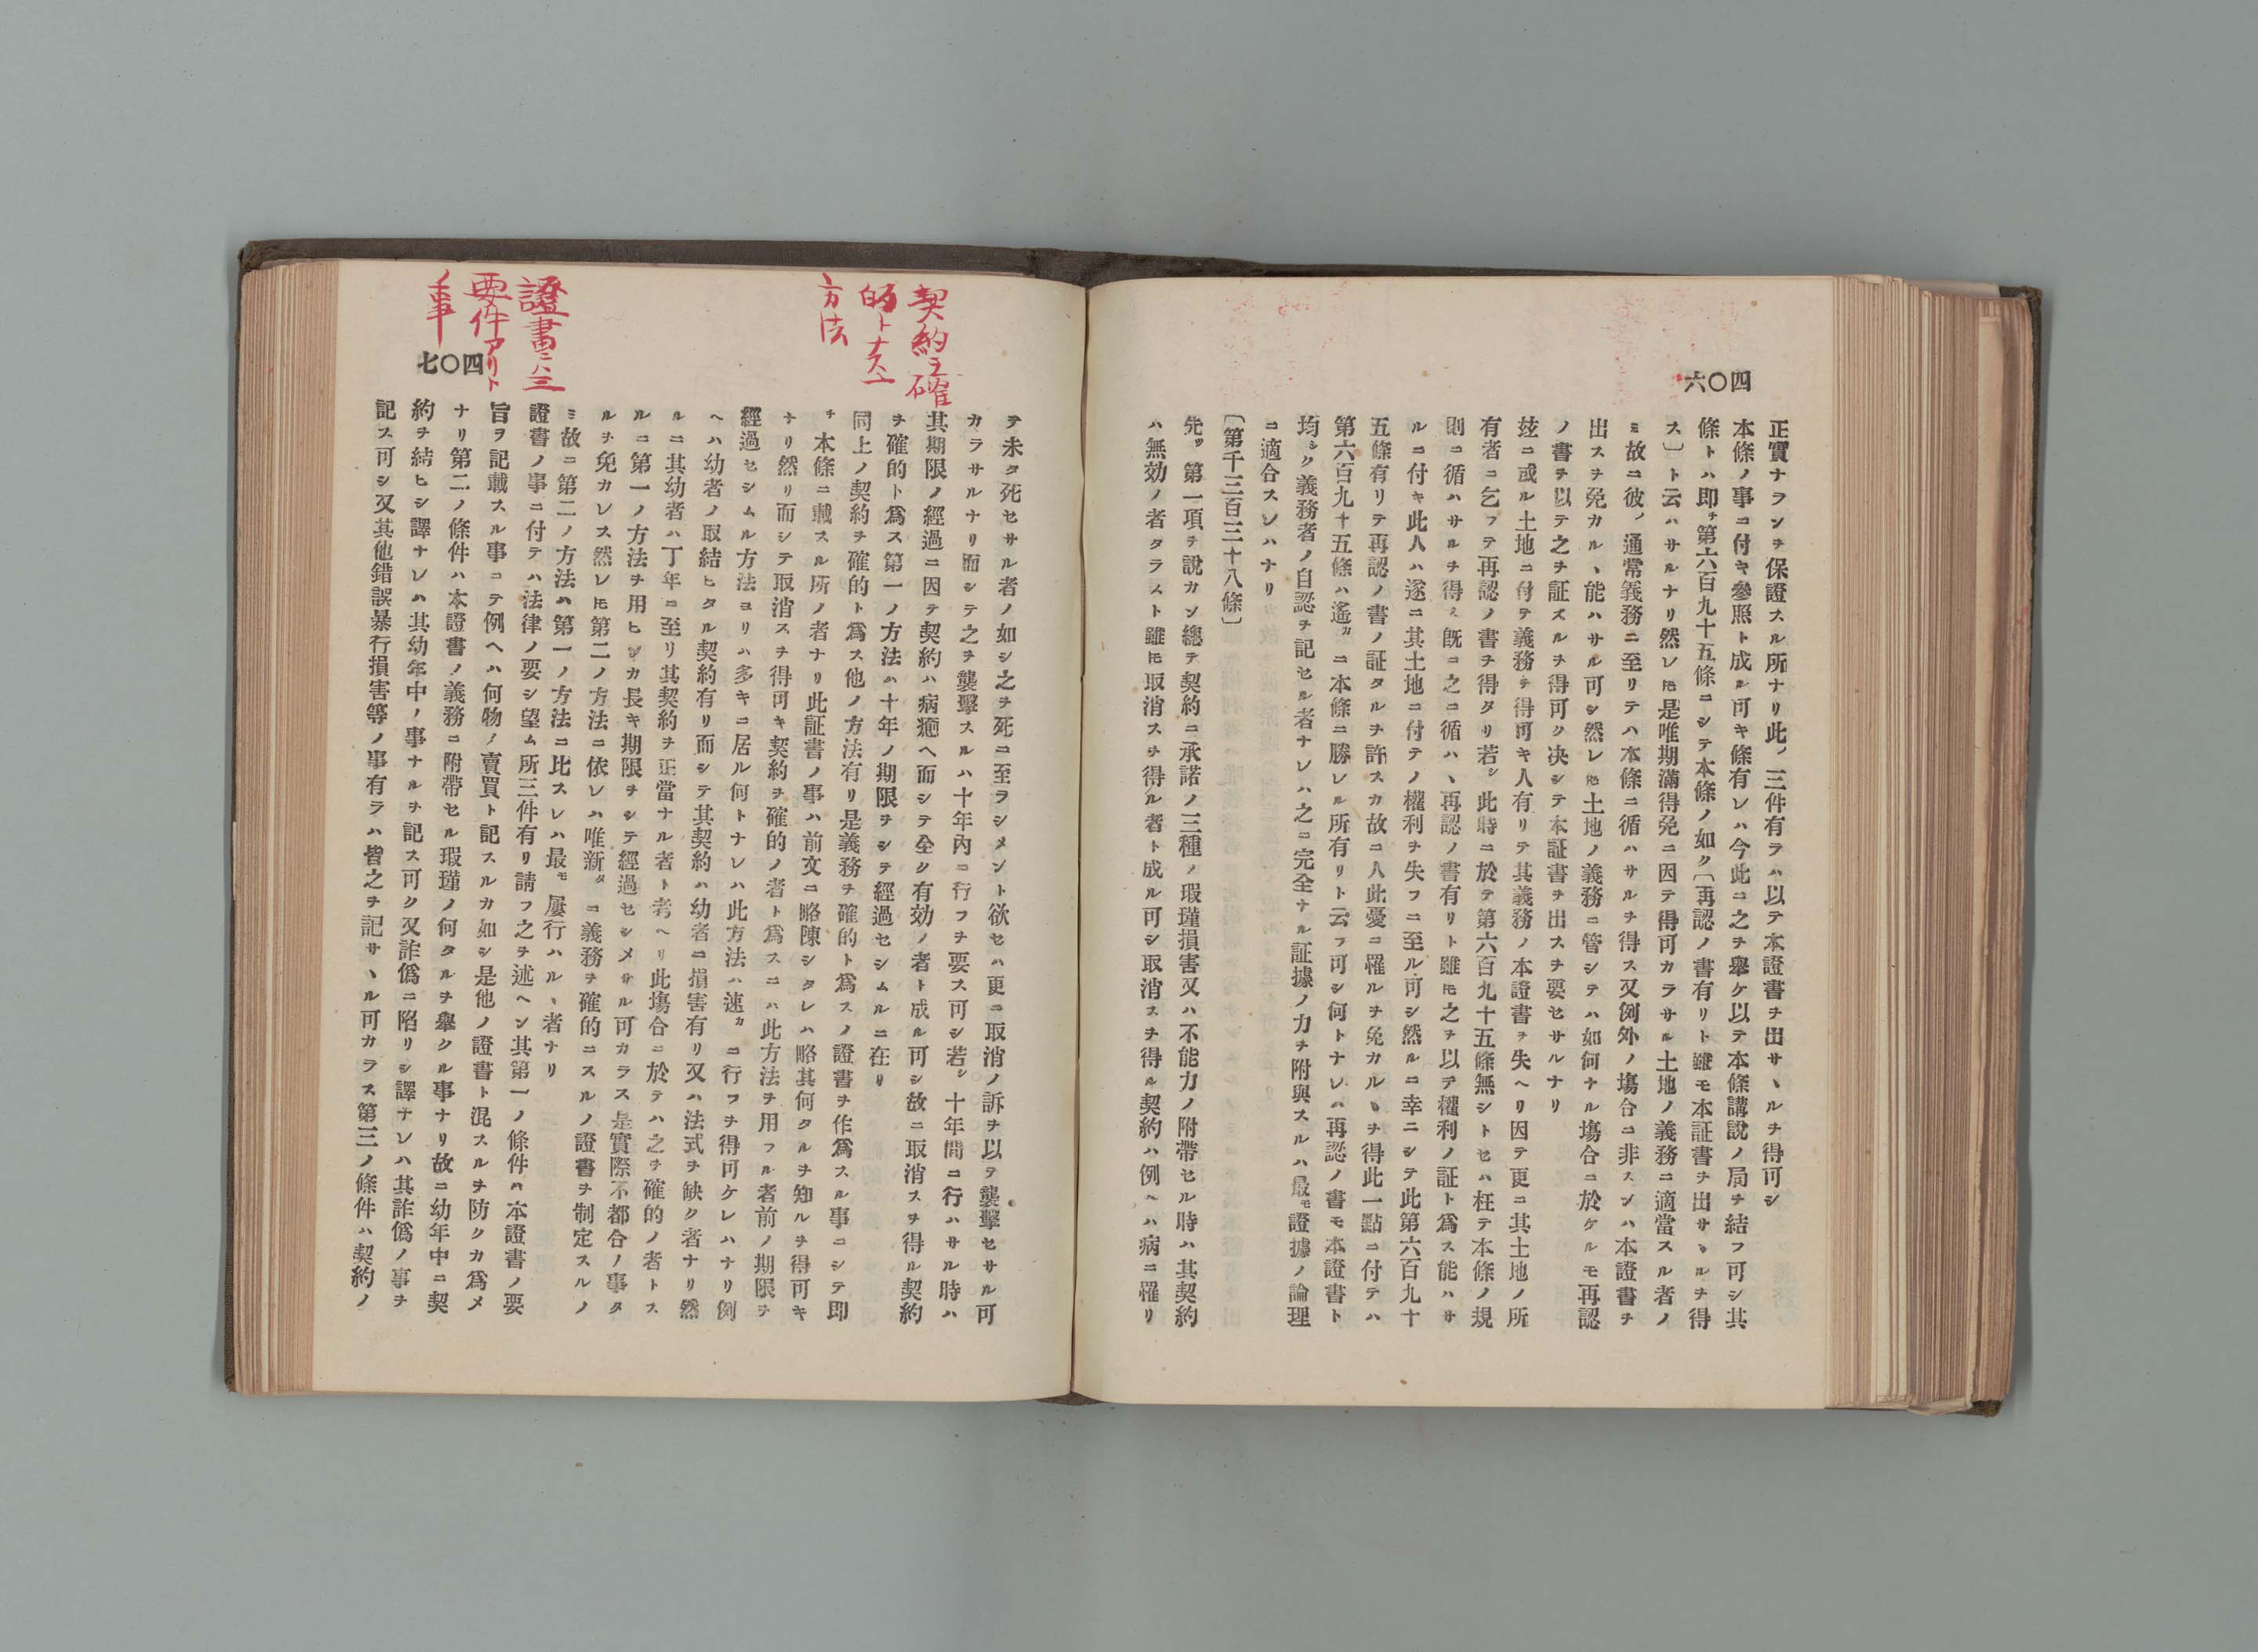 四〇六
正實ナラシヲ保證スル所ナリ此ノ三件有ラハ以テ本證書ヲ出サヽルヲ得可シ
本條ノ事ニ付キ參照ト成ル可キ條有レハ今此ニ之ヲ舉ケ以テ本條講說ノ局ヲ結フ可シ其
條トハ即チ第六百九十五條ニシテ本條ノ如ク〔再認ノ書有リト雖モ本証書ヲ出サヽルヲ得
ス〕ト云ハサルナリ然レ𪜈是唯期滿得免ニ因テ得可カラサル土地ノ義務ニ適當スル者ノ
ミ故ニ彼ノ通常義務ニ至リテハ本條ニ循ハサルヲ得ス又例外ノ塲合ニ非スンハ本證書ヲ
出スヲ免カルヽ能ハサル可シ然レ𪜈土地ノ義務ニ管シテハ如何ナル塲合ニ於ケルモ再認
ノ書ヲ以テ之ヲ証スルヲ得可ク决シテ本証書ヲ出スヲ要セサルナリ
玆ニ或ル土地ニ付テ義務ヲ得可キ人有リテ其義務ノ本證書ヲ失ヘリ因テ更ニ其土地ノ所
有者ニ乞フテ再認ノ書ヲ得タリ若シ此時ニ於テ第六百九十五條無シトセハ枉テ本條ノ規
則ニ循ハサルヲ得ス既ニ之ニ循ハヽ再認ノ書有リト雖𪜈之ヲ以テ權利ノ証ト爲ス能ハサ
ルニ付キ此人ハ遂ニ其土地ニ付テノ權利ヲ失フニ至ル可シ然ルニ幸ニシテ此第六百九十
五條有リテ再認ノ書ノ証タルヲ許スカ故ニ人此憂ニ罹ルヲ免カルヽヲ得此一點ニ付テハ
第六百九十五條ハ遙カニ本條ニ勝レル所有リト云フ可シ何トナレハ再認ノ書モ本證書ト
均シク義務者ノ自認ヲ記セル者ナレハ之ニ完全ナル証據ノ力ヲ附與スルハ最モ證據ノ論理
ニ適合スレハナリ
〔第千三百三十八條〕
先ツ第一項ヲ說カン總テ契約ニ承諾ノ三種ノ瑕瑾損害又ハ不能力ノ附帶セル時ハ其契約
ハ無効ノ者タラスト雖𪜈取消スヲ得ル者ト成ル可シ取消スヲ得ル契約ハ例ヘハ病ニ罹リ
契約ヲ確
的トナス
方法
證書ニハ三
要件アリト
ノ事
四〇七
テ未タ死セサル者ノ如シ之ヲ死ニ至ラシメント欲セハ更ニ取消ノ訴ヲ以テ襲擊セサル可
カラサルナリ而シテ之ヲ襲擊スルハ十年內ニ行フヲ要ス可シ若シ十年間ニ行ハサル時ハ
其期限ノ經過ニ因テ契約ハ病癒ヘ而シテ全ク有効ノ者ト成ル可シ故ニ取消スヲ得ル契約
ヲ確的ト爲ス第一ノ方法ハ十年ノ期限ヲシテ經過セシムルニ在リ
同上ノ契約ヲ確的ト爲ス他ノ方法有リ是義務ヲ確的ト爲スノ證書ヲ作爲スル事ニシテ即
チ本條ニ載スル所ノ者ナリ此証書ノ事ハ前文ニ略陳シタレハ略其何タルヲ知ルヲ得可キ
ナリ然リ而シテ取消スヲ得可キ契約ヲ確的ノ者ト爲スニハ此方法ヲ用フル者前ノ期限ヲ
經過セシムル方法ヨリハ多キニ居ル何トナレハ此方法ハ速カニ行フヲ得可ケレハナリ例
ヘハ幼者ノ取結ヒタル契約有リ而シテ其契約ハ幼者ニ損害有リ又ハ法式ヲ缺ク者ナリ然
ルニ其幼者ハ丁年ニ至リ其契約ヲ正當ナル者ト考ヘリ此塲合ニ於テハ之ヲ確的ノ者トス
ルニ第一ノ方法ヲ用ヒンカ長キ期限ヲシテ經過セシメサル可カラス是實際不都合ノ事タ
ルヲ免カレス然レ𪜈第二ノ方法ニ依レハ唯新タニ義務ヲ確的ニスルノ證書ヲ制定スルノ
ミ故ニ第二ノ方法ハ第一ノ方法ニ比スレハ最モ屢行ハルヽ者ナリ
證書ノ事ニ付テハ法律ノ要シ望ム所三件有リ請フ之ヲ述ヘン其第一ノ條件ハ本證書ノ要
旨ヲ記載スル事ニテ例ヘハ何物ノ賣買ト記スルカ如シ是他ノ證書ト混スルヲ防クカ爲メ
ナリ第二ノ條件ハ本證書ノ義務ニ附帶セル瑕瑾ノ何タルヲ舉クル事ナリ故ニ幼年中ニ契
約ヲ結ヒシ譯ナレハ其幼年中ノ事ナルヲ記ス可ク又詐僞ニ陷リシ譯ナレハ其詐僞ノ事ヲ
記ス可シ又其他錯誤暴行損害等ノ事有ラハ皆之ヲ記サヽル可カラス第三ノ條件ハ契約ノ